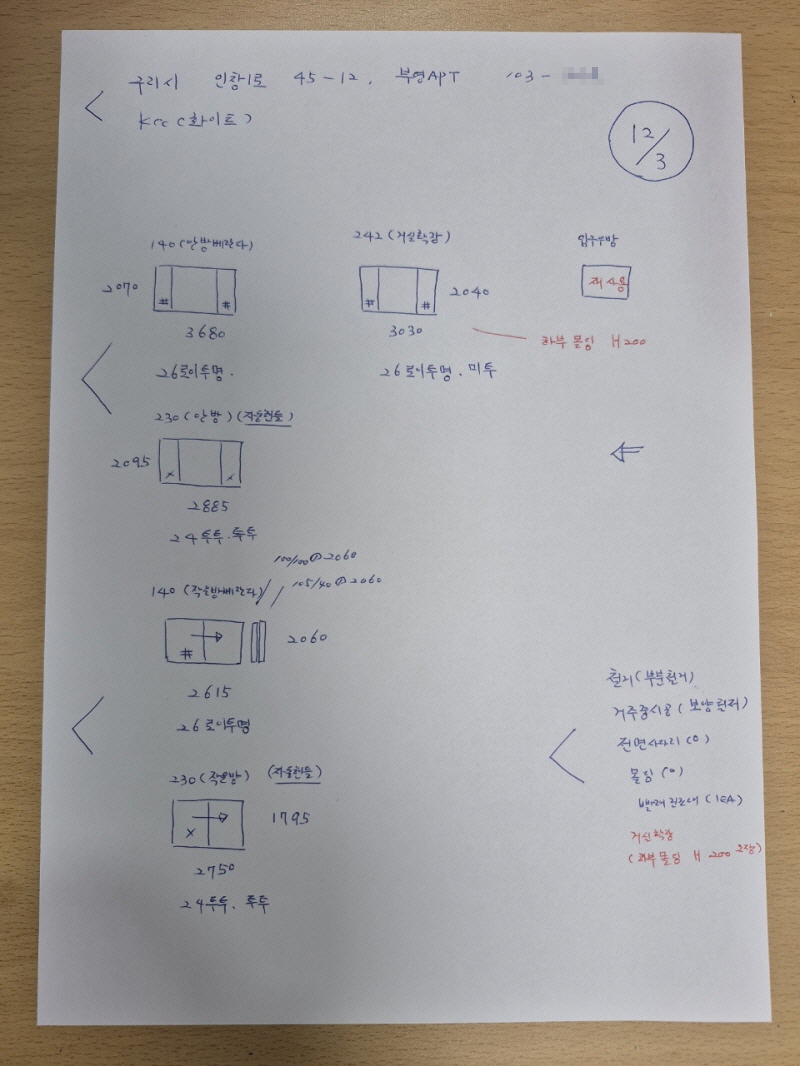 구리시 인창1로 45-12, 부영APT 103-
KCC (화이트)
12/3
140 (안방베란다)
2070
#
#
3680
26로이투명.
242 (거실확장)
#
#
2040
3030
26로이투명. 미투
하부 몰딩 H200
재사용
230 (안방) (자동핸들)
2095
x
x
2885
24투투.투투
100/100 @ 2060
105/40 @ 2060
140 (작은방베란다)
#
2060
2615
26로이투명
230 (작은방) (자동핸들)
x
1795
2750
24투투. 투투
철거(부분철거)
거주중시공 (보양철저)
전면사다리 (O)
몰딩 (O)
빨래건조대 (1EA)
거실확장
(하부몰딩 H 200 2장)